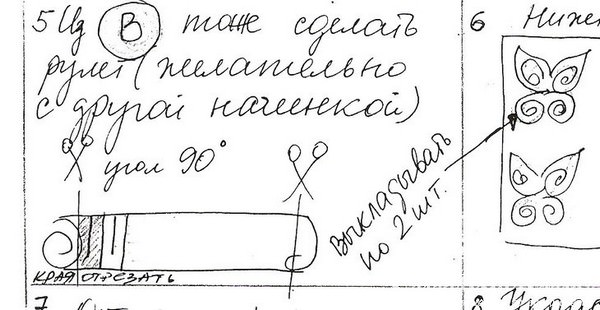 5 Из В тоже сделать
рулет (желательно
с другой начинкой)
угол 90°
КРАЯ ОТРЕЗАТЬ
6 Ниже
Выкладывать
по 2 шт.
7
8